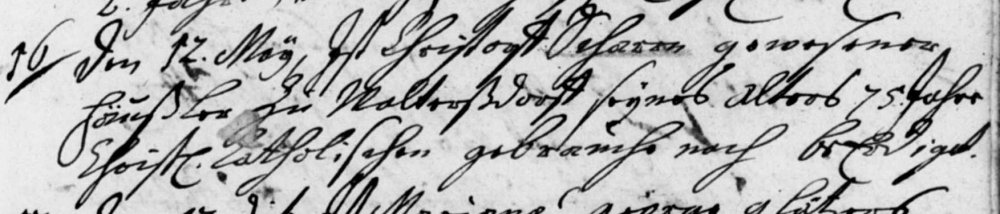 16 Den 12. Maÿ, Ist Christoph Scharm gewesener
Häußler zu Waltersdorff seynes Alters 75. Jahre
Christl. Catholischen gebrauche nach beerdiget.